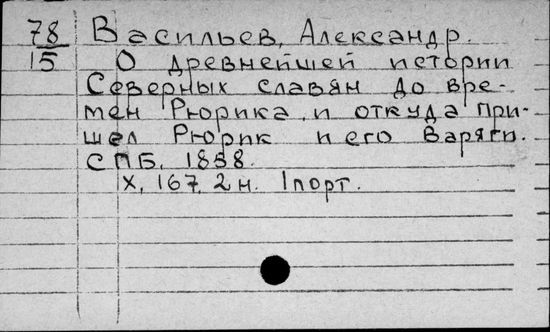 78 Васильев, Александр.
15 О древнейшей истории
Северных славян до вре-
мен Рюрика, и откуда при-
шел Рюрик и его Варяги.
СПБ, 1858.
X, 167, 2 н. 1 порт.